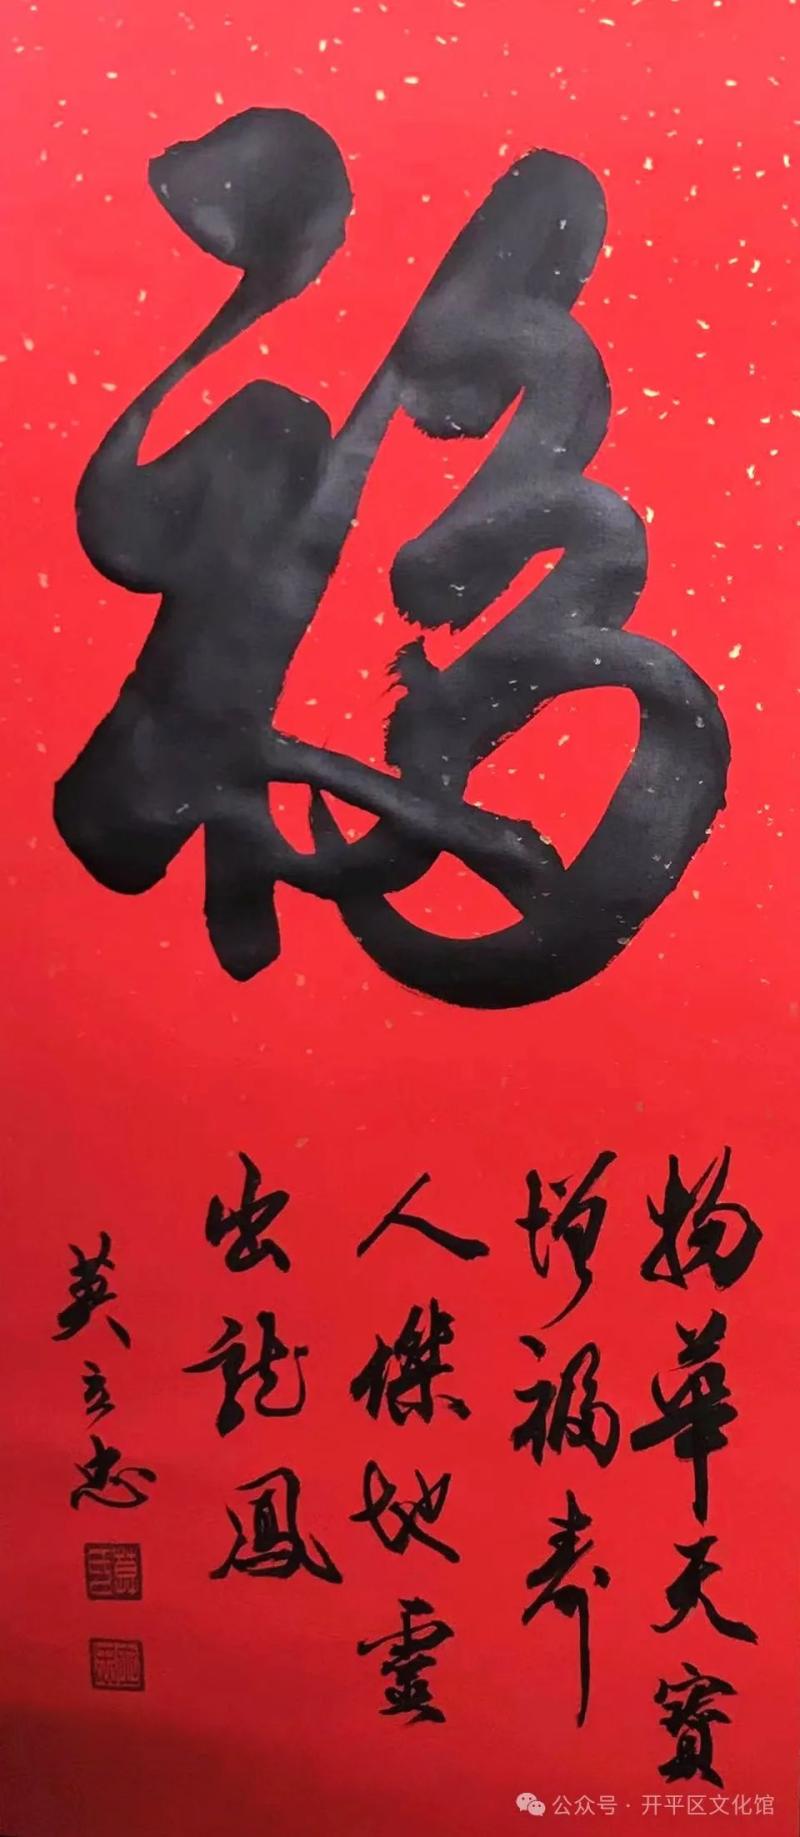 福
物華天寶
增福寿
人傑地靈
出龍鳳
英立忠
公众号 · 开平区文化馆